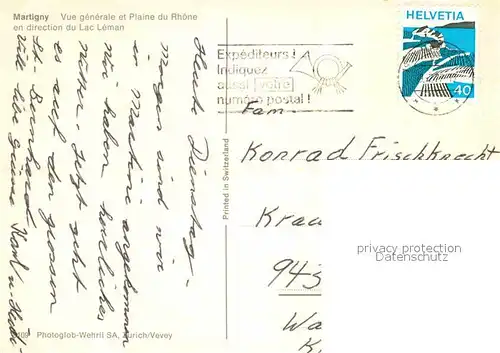 Martigny Vue générale et Plaine du Rhône
en direction du Lac Léman
HELVETIA
40
Expéditeurs!
Indiquez
aussi votre
numéro postal!
Heute Dienstag-
Morgen sind wir
in Martini angekommen
Wir haben herrliches
Wetter. Jetzt geht
es auf den grossen
St. Bernhard
Viele liebe Grüsse Karl u. Heidi
Fam.
Konrad Frischknecht
Kra
943
Wa
privacy protection
DATENSCHUTZ
Printed in Switzerland
Photoglob-Wehrli SA, Zürich/Vevey